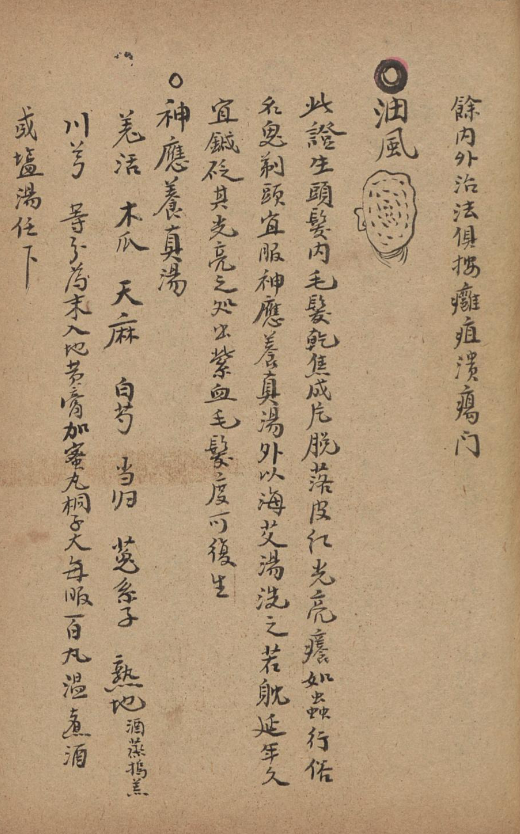 餘内外治法俱按癰疽潰瘍门
油風
此證生頭髮内毛髮乾焦成片脱落皮红光亮癢如虫行俗
名鬼剃頭宜服神應養真湯外以海艾湯洗之若躭延年久
宜鍼砭其光亮之处出紫血毛髮度可復生
神應養真湯
羌活 木瓜 天麻 白芍 当归 菟糸子 熟地酒蒸搗羔
川芎 等分為末入地黄膏加蜜丸桐子大每服百丸温煮酒
或塩湯任下